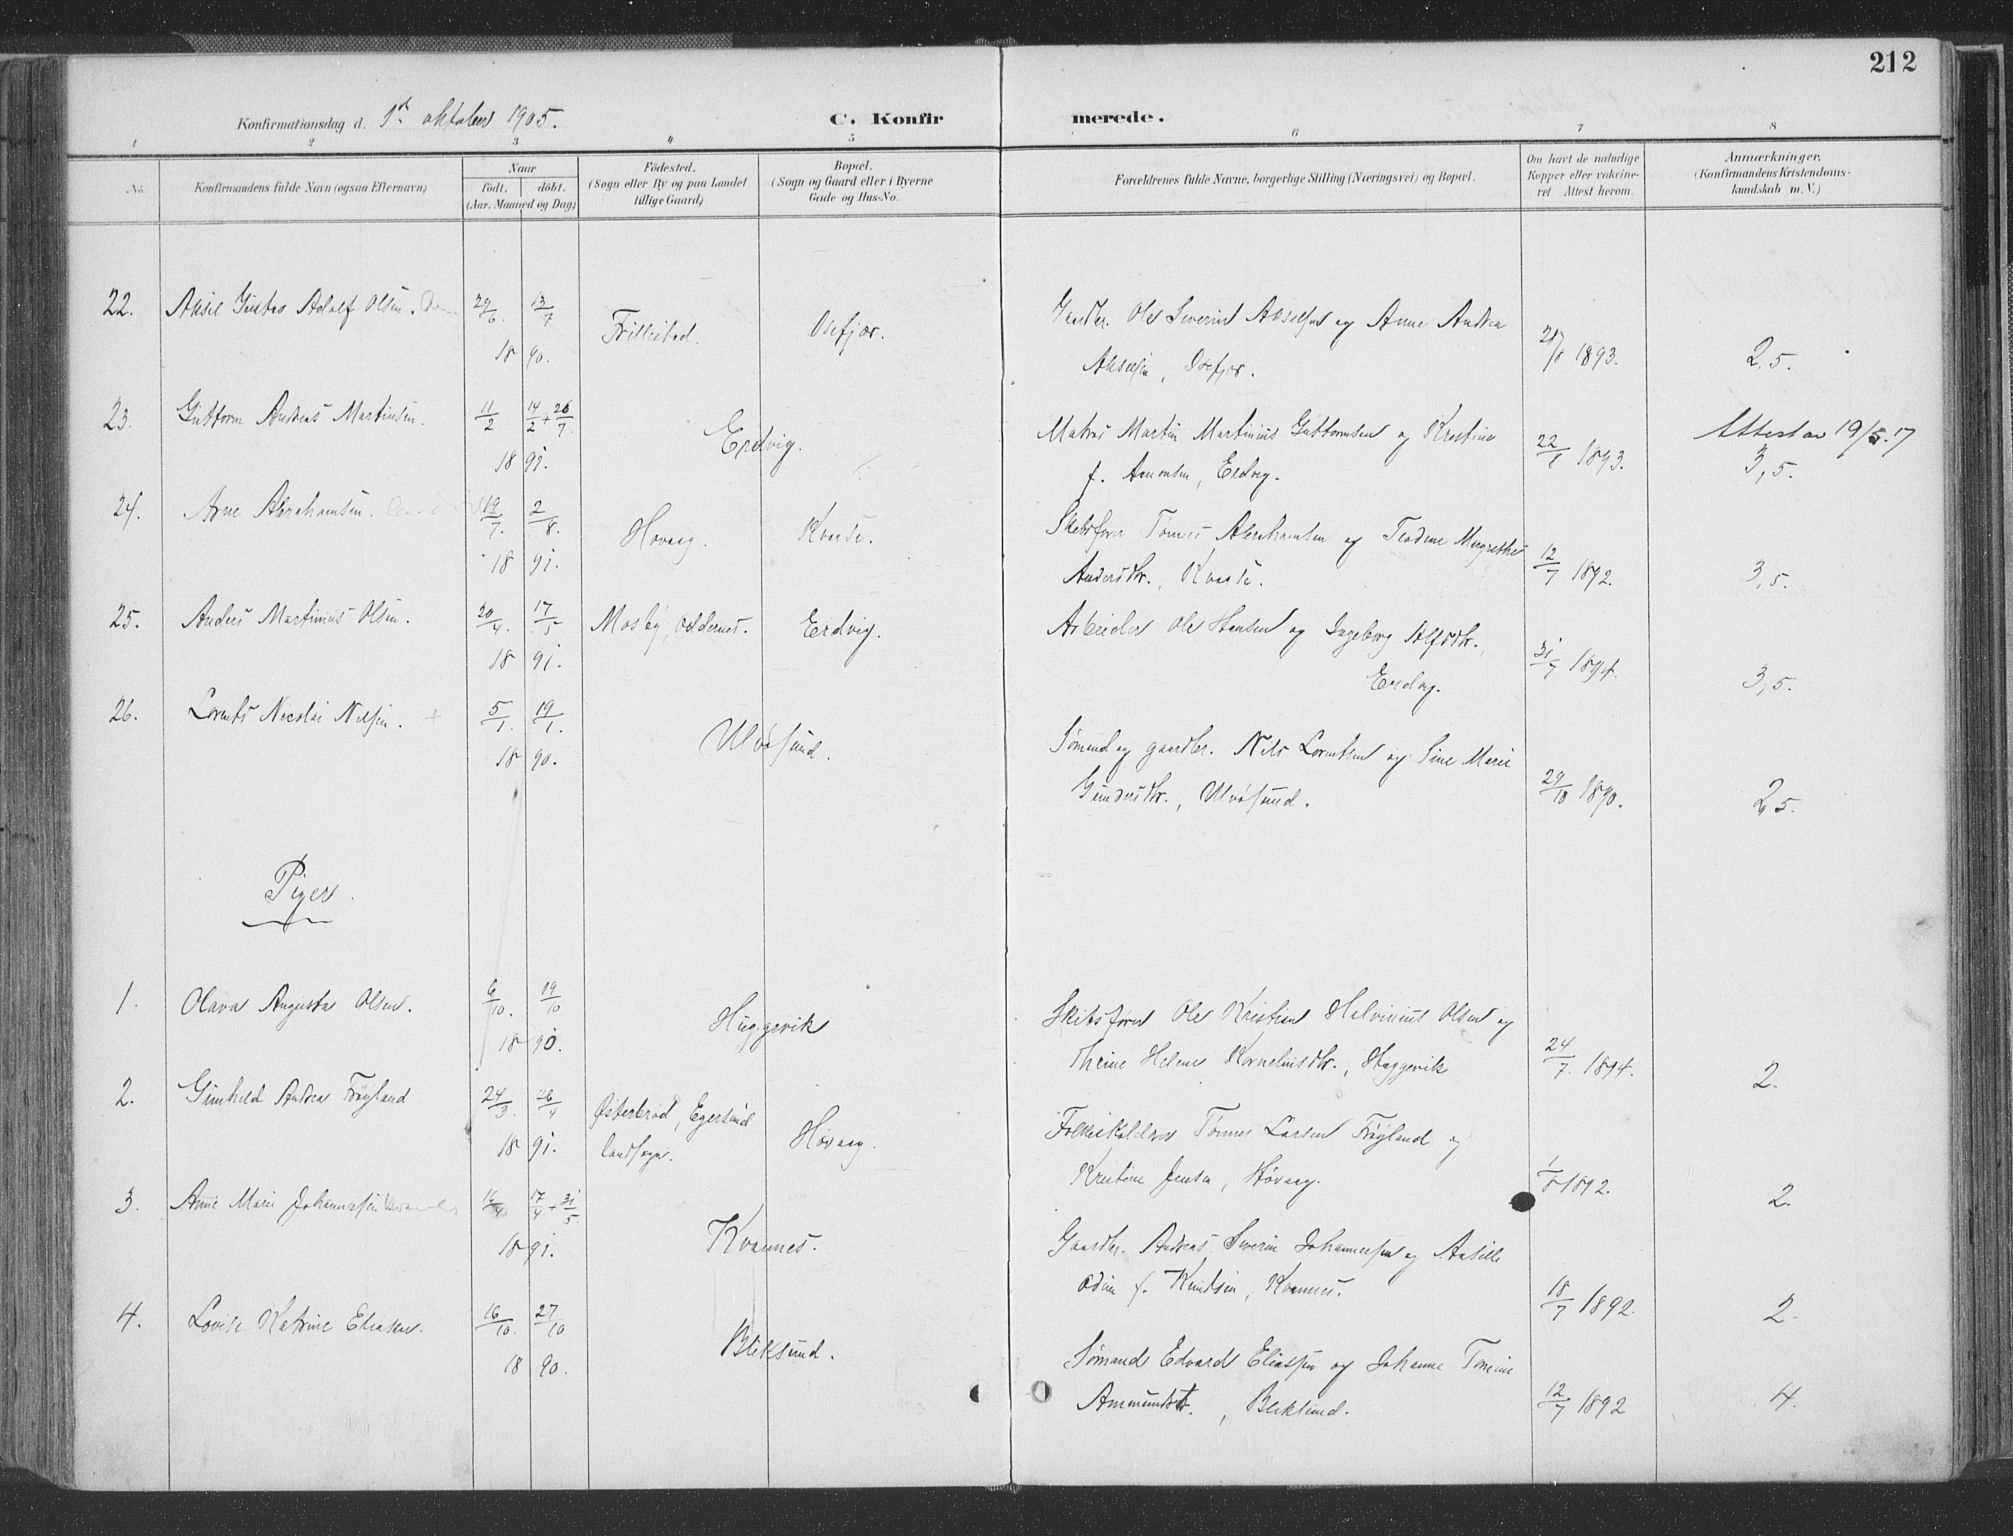 212
Konfirmationsdag d. 1ste oktober 1905.
C. Konfirmerede.
1 2 3 4 5 6 7 8
No.
Konfirmandens fulde Navn (ogsaa Efternavn)
Naar
födt. döbt.
(Aar, Maaned og Dag)
Födested.
(Sogn eller By og paa Landet tillige Gaard)
Bopæl.
(Sogn og Gaard eller i Byerne Gade og Hus-No.
Forældrenes fulde Navne, borgerlige Stilling (Næringsvei) og Bopæl.
Om havt de naturlige Kopper eller vaccineret Attest herom.
Anmærkninger.
(Konfirmandens Kristendomskundskab m. V.)
22. Aksel Gustav Adolf Olsen. 29/6. 13/7 Gaardbr. Ole Severin Akselsen og Anne Andrea
18 90. Frillestad. Osefjær. Akselsen, Osefjær. 1893. 2,5.
23. Guttorm Andreas Martinsen. 11/2 14/2 + 26/7. Erdvig. Matros Martin Martinius Guttormsen og Kristine
18 91. f. Aanonsen, Erdvig. 22/8 1893. 3,5. Attest av 19/5.17
24. Arne Abrahamsen. 19/7. 2/8. Hovaag. Kvaase. Skibsfører Tønnes Abrahamsen og Teodine Margrethe
18 91. Andersdtr., Kvaase. 12/7 1892. 3,5.
25. Anders Martinius Olsen. 20/4. 17/5 Mosby, Oddernes. Erdvig. Arbeider Ole Hansen og Ingeborg Alfsdtr.,
18 91. Erdvig. 31/7 1894. 3,5.
26. Lorents Nicolai Nilsen. + 5/1. 19/1. Ulvøsund. Sømand og gaardbr. Nils Lorentsen og Sine Marie
18 90. Gundersdtr., Ulvøsund. 29/10 1890. 2,5.
Piger.
1. Olava Augusta Olsen. 6/10. 19/10 Huggevik Skibsfører Ole Kristian Helvinius Olsen og
18 90. Thrine Helene Kornelinsdtr., Huggevik 24/7. 1894. 2.
2. Gunhild Andrea Frøyland 24/3 26/4 Østerbrød, Egersund Folkeskolelærer Tønnes Larsen Frøyland og
18 91. landsogn. Høvaag. Kristine Jensen, Høvaag. 1/8 1892. 2.
3. Anne Marie Johannessen 16/4 17/4 + 31/5. Kvannes. Gaardbr. Andreas Severin Johannessen og Aasille
18 91. Odine f. Knudsen, Kvannes. 18/7 1892. 2.
4. Lovise Katrine Eliassen. 16/10. 27/10 Bliksund. Sømand Edvard Eliassen og Johanne Tomine
18 90. Ammundsdtr., Bliksund. 12/7 1892 4.